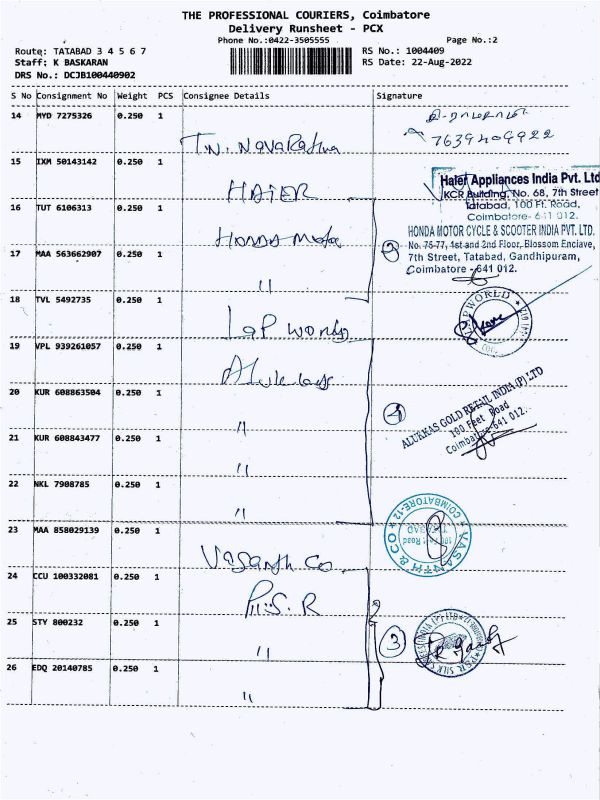 THE PROFESSIONAL COURIERS, Coimbatore
Delivery Runsheet - PCX
Phone No.:0422-3505555 Page No.:2
Route: TATABAD 3 4 5 6 7 RS No.: 1004409
Staff: K BASKARAN RS Date: 22-Aug-2022
DRS No.: DCJB100440902
S No Consignment No Weight PCS Consignee Details Signature
14 MYD 7275326 0.250 1 T.N. NavaRathna
7639409922
15 IXM 50143142 0.250 1 HAIER
Haier Appliances India Pvt. Ltd
KCR Building, No. 68, 7th Street
Tatabad, 100 Ft. Road,
Coimbatore- 641 012.
16 TUT 6106313 0.250 1 HONDA Motor
HONDA MOTOR CYCLE & SCOOTER INDIA PVT. LTD.
No. 75-77, 1st and 2nd Floor, Blossom Enclave,
7th Street, Tatabad, Gandhipuram,
Coimbatore - 641 012.
17 MAA 563662907 0.250 1 "
2
18 TVL 5492735 0.250 1 Lap world
19 VPL 939261057 0.250 1
20 KUR 608863504 0.250 1 "
4
ALUKKAS GOLD RETAIL INDIA (P) LTD
100 Feet Road
Coimbatore-641 012.
21 KUR 608843477 0.250 1 "
22 NKL 7908785 0.250 1 "
23 MAA 858029139 0.250 1 Vasanth Co.
VASANTH & CO
COIMBATORE-12
24 CCU 100332081 0.250 1 P.S.R
25 STY 800232 0.250 1 "
3
26 EDQ 20140785 0.250 1 "